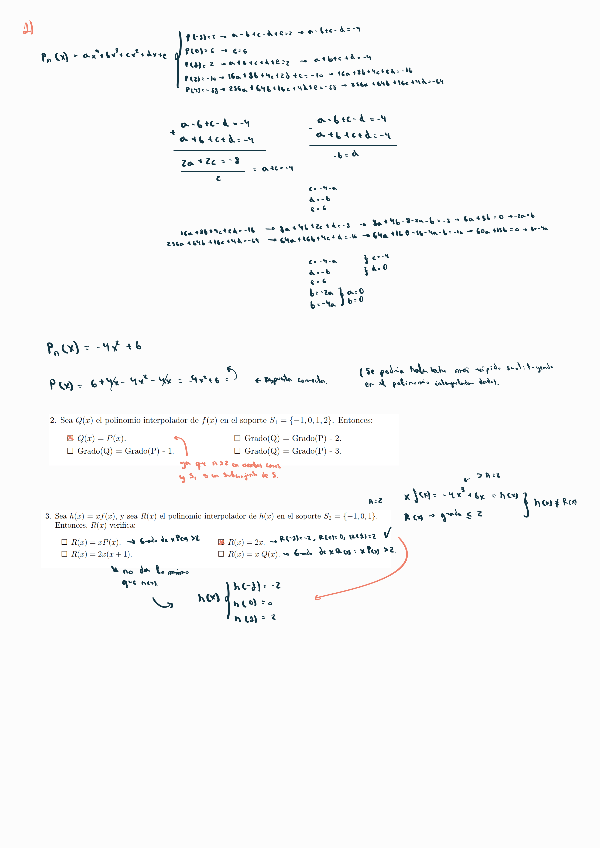 1)
P(-1)=2 → a-b+c-d+e=2 → a-b+c-d=-4
Pn(x) = ax⁴+bx³+cx²+dx+e
P(0)=6 → e=6
P(1)=2 → a+b+c+d+e=2 → a+b+c+d=-4
P(2)=-10 → 16a+8b+4c+2d+e=-10 → 16a+8b+4c+2d=-16
P(4)=-58 → 256a+64b+16c+4d+e=-58 → 256a+64b+16c+4d=-64
a-b+c-d=-4
+ a+b+c+d=-4
2a+2c=-8
= a+c=-4
a-b+c-d=-4
- a+b+c+d=-4
-b=d
c=-4-a
d=-b
e=6
16a+8b+4c+2d=-16 → 8a+4b+2c+d=-8 → 8a+4b-8-2a-b=-8 → 6a+3b=0 → -2a=b
256a+64b+16c+4d=-64 → 64a+16b+4c+d=-16 → 64a+16b-16-4a-b=-16 → 60a+15b=0 → b=-4a
c=-4-a } c=-4
d=-b } d=0
e=6
b=-2a } a=0
b=-4a } b=0
Pn(x) = -4x²+6
P(x) = 6+4x-4x²-4x = -4x²+6 = ← Respuesta correcta.
(Se podría haber hecho más rápido sustituyendo
en el polinomio interpolador dado).
2. Sea Q(x) el polinomio interpolador de f(x) en el soporte S₁ = {−1, 0, 1, 2}. Entonces:
☒ Q(x) = P(x).
☐ Grado(Q) = Grado(P) - 2.
☐ Grado(Q) = Grado(P) - 1.
☐ Grado(Q) = Grado(P) - 3.
ya que n≥2 en ambos casos
y S₁ es un subconjunto de S.
n=2
x f(x) = -4x³+6x = h(x)
> n=2
R(x) → grado ≤ 2
} h(x) ≠ R(x)
3. Sea h(x) = xf(x), y sea R(x) el polinomio interpolador de h(x) en el soporte S₂ = {−1, 0, 1}.
Entonces, R(x) verifica:
☐ R(x) = xP(x). → Grado de xP(x) >2
☒ R(x) = 2x. → R(-1)=-2, R(0)=0, R(1)=2 ✓
☐ R(x) = 2x(x + 1).
☐ R(x) = x Q(x) → Grado de xQ(x) = xP(x) >2
no da lo mismo
que h(x)
h(x) { h(-1) = -2
h(0) = 0
h(1) = 2